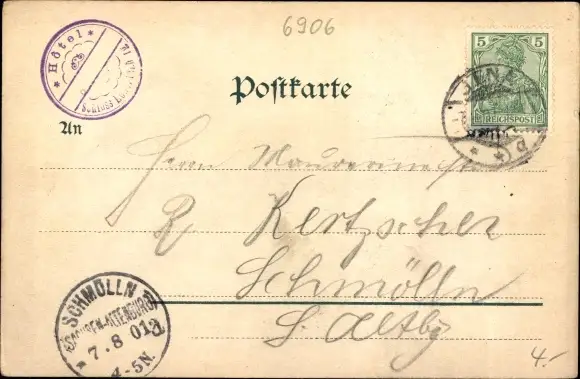 6906
* Hôtel *
Schloss
5 5
REICHSPOST
JENA
Postkarte
An
Herrn
R Kertzscher
Schmölln
S. Altbg
SCHMÖLLN
SACHSEN-ALTENBURG
7.8 01
4-5N.
4.-